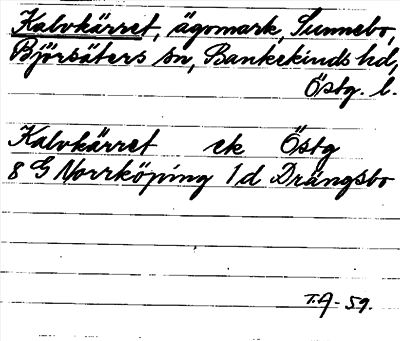 Kalvkärret, ägomark, Sunnebo,
Björsäters sn, Bankekinds hd,
Östg. l.
Kalvkärret ek Östg
8 G Norrköping 1d Drängsbo
T.A. 59.